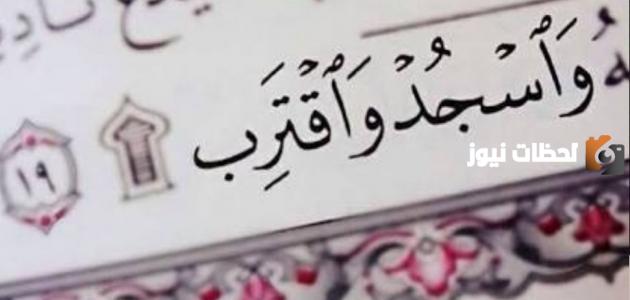 وَٱسۡجُدۡ وَٱقۡتَرِب ۩ ١٩
لحظات نيوز